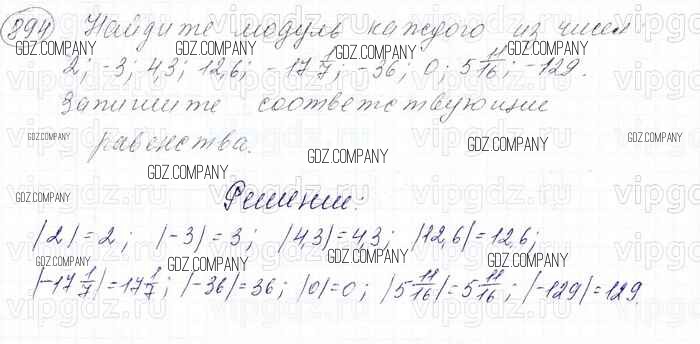 894 Найдите модуль каждого из чисел
GDZ.COMPANY GDZ.COMPANY GDZ.COMPANY GDZ.COMPANY
2; -3; 4,3; 12,6; -17 1/7; -36; 0; 5 11/16; -129.
Запишите соответствующие
GDZ.COMPANY GDZ.COMPANY GDZ.COMPANY
равенства.
GDZ.COMPANY GDZ.COMPANY
GDZ.COMPANY GDZ.COMPANY GDZ.COMPANY
Решение:
|2|=2; |-3|=3; |4,3|=4,3; |12,6|=12,6;
GDZ.COMPANY GDZ.COMPANY GDZ.COMPANY GDZ.COMPANY
|-17 1/7|=17 1/7; |-36|=36; |0|=0; |5 11/16|=5 11/16; |-129|=129.